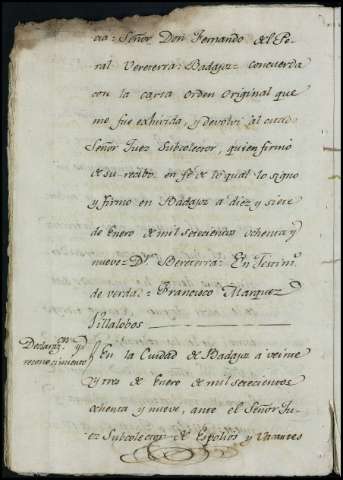 cia = Señor Don Fernando del Pe-
ral Vereterra = Badajoz = concuerda
con la carta orden original que
me fue exhivida, y devolvi al citado
Señor Juez Subcolector, quien firmó
de su recibo. en fe de lo qual lo signo
y firmo en Badajoz á diez y siete
de Enero de mil setecientos ochenta y
nueve = Dr. Bereterra = En Testim.º
de verdad = Francisco Marquez
Villalobos
Declarazn. y
reconocimiento
En la Ciudad de Badajoz á veinte
y tres de Enero de mil setecientos
ochenta y nueve, ante el Señor Ju-
ez Subcolector de Espolios y Vacantes